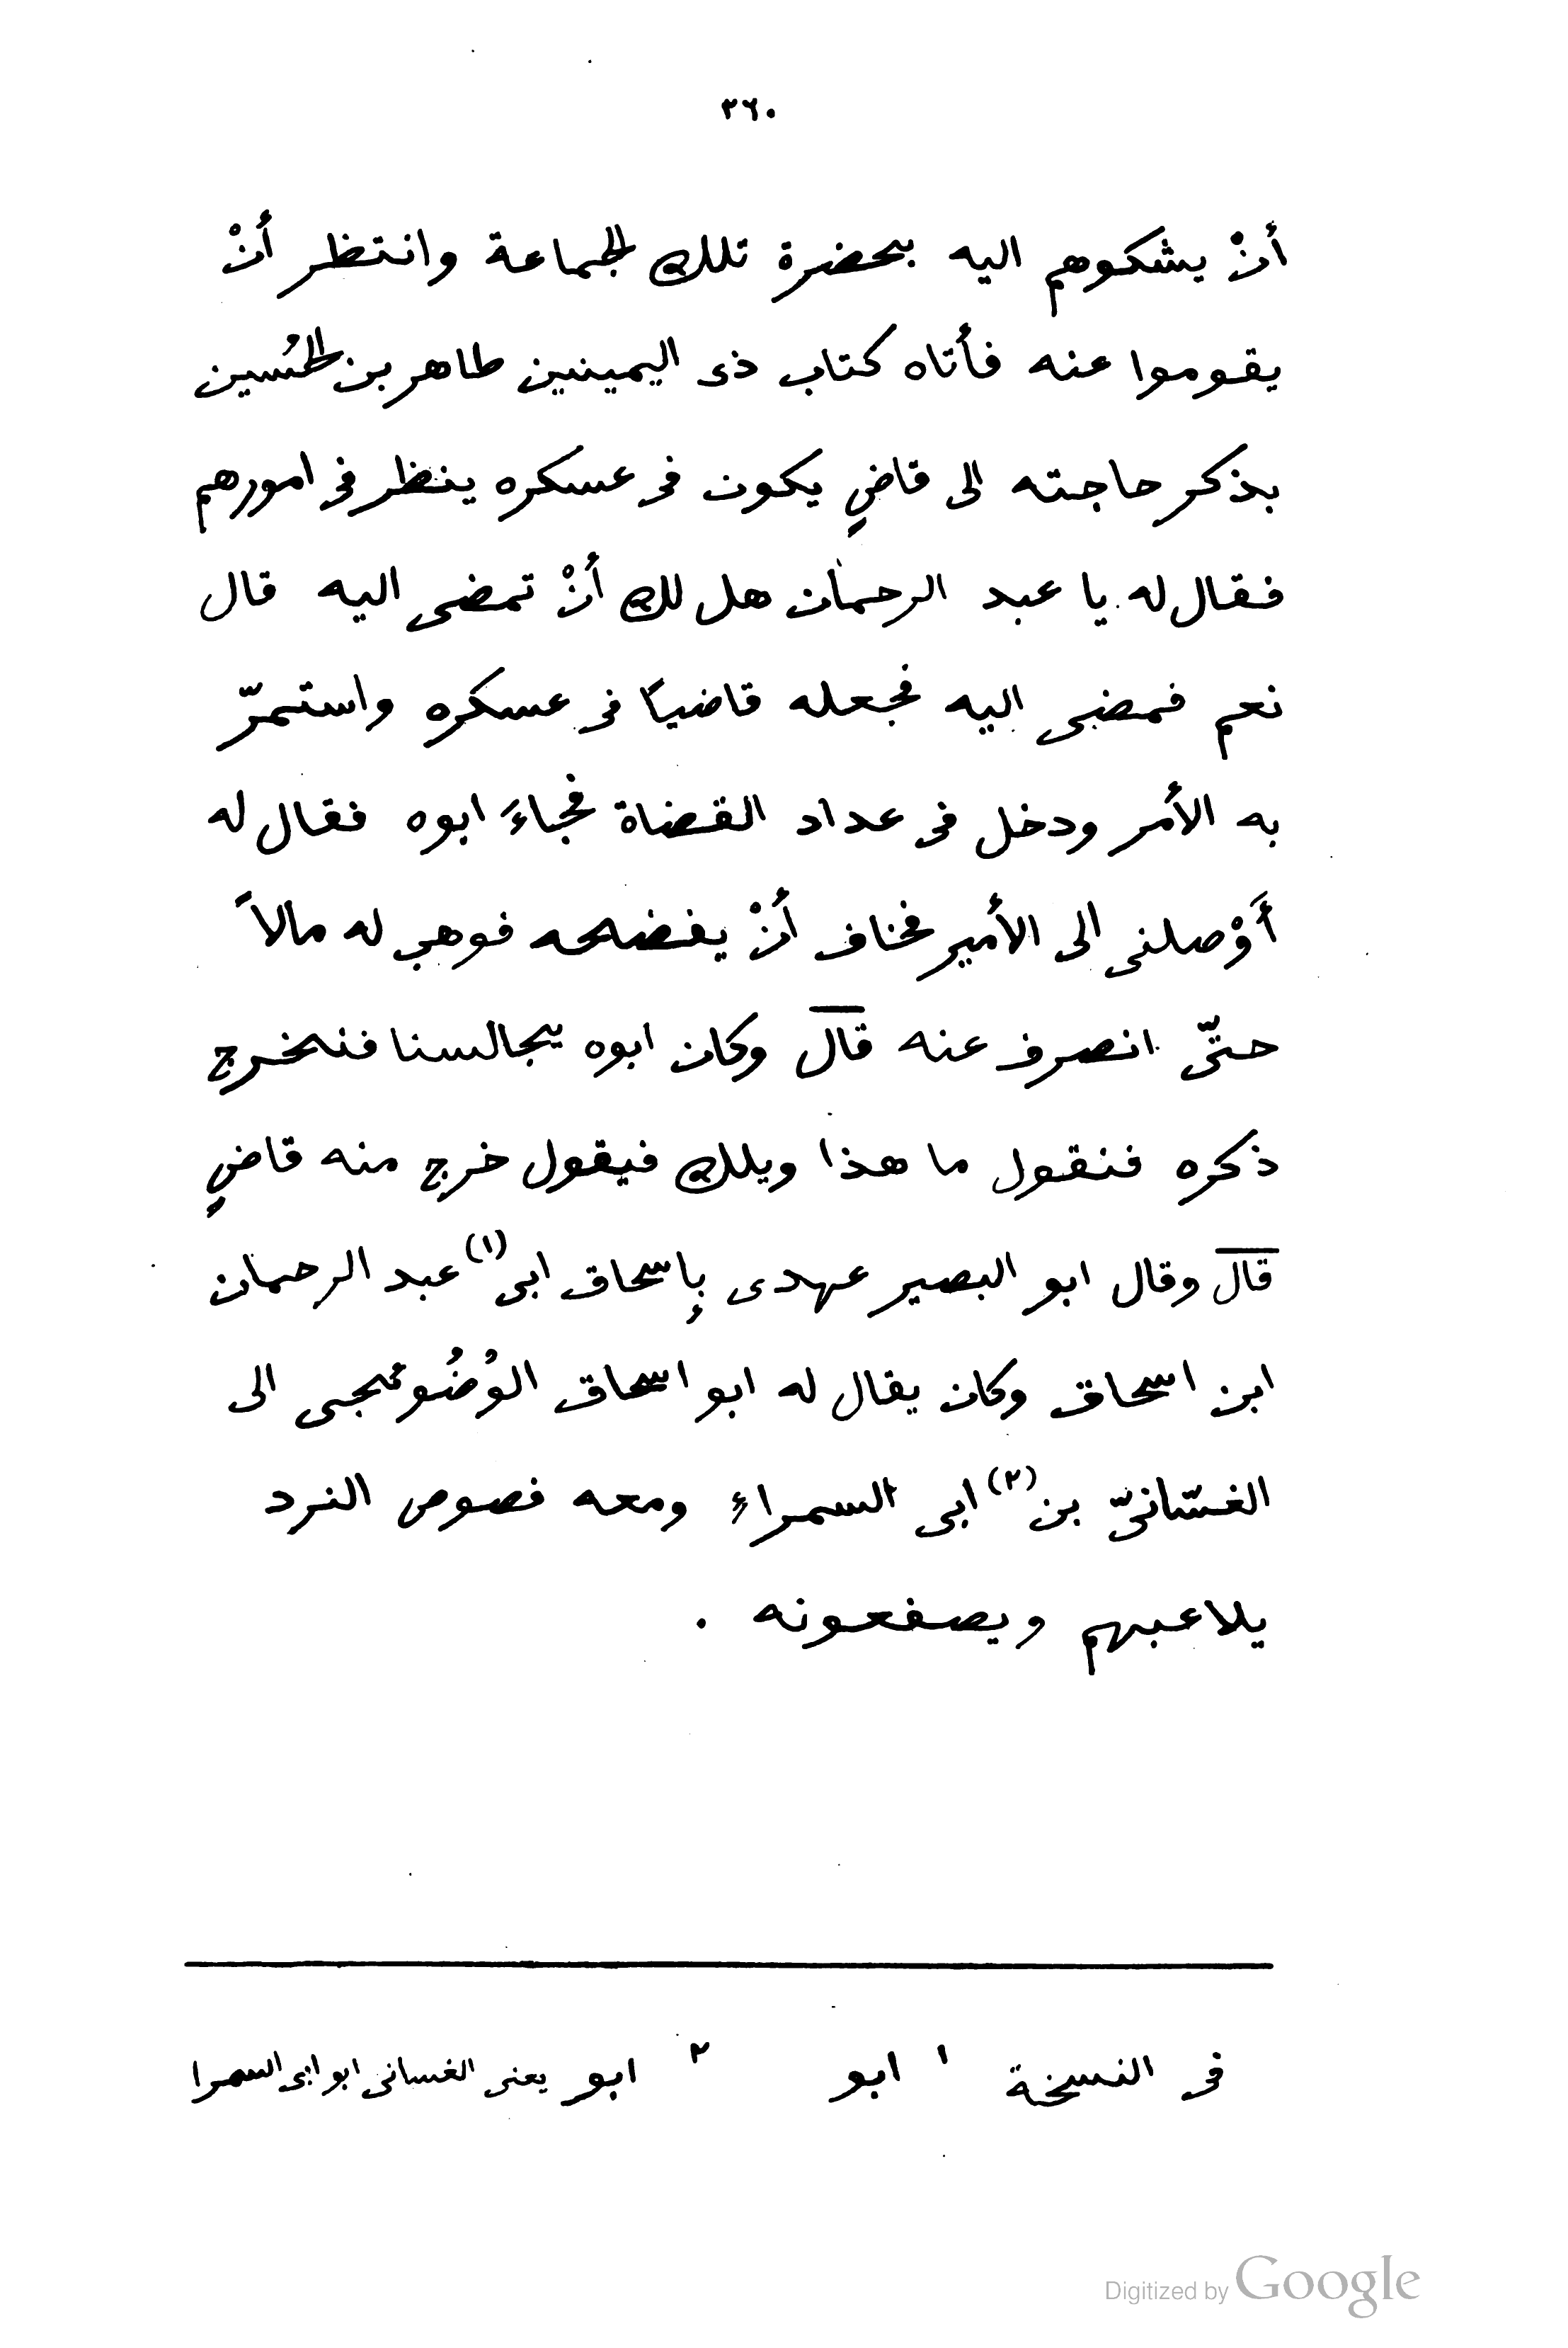 ٢٦٠
أنْ يشكوهم اليه بحضرة تلك الجماعة وانتظر أنْ
يقوموا عنه فأتاه كتاب ذى اليمينين طاهر بن الحُسين
بذكر حاجته الى قاضٍ يكون فى عسكره ينظر فى امورهم
فقال له يا عبد الرحمان هل لك أنْ تمضى اليه قال
نعم فمضى اليه فجعله قاضيًا فى عسكره واستمرّ
به الأمر ودخل فى عداد القضاة فجاءَ ابوه فقال له
أَوْصلنى الى الأمير فخاف أنْ يفضحه فوهب له مالاً
حتّى انصرف عنه قال وكان ابوه يجالسنا فنخرج
ذكره فنقول ما هذا ويلك فيقول خرج منه قاضٍ
قال وقال ابو البصير عهدى بإسحاق ابى (١) عبد الرحمان
ابن اسحاق وكان يقال له ابو اسحاق الوُضُوئ يجى الى
الغسّانىّ بن (٢) ابى السمراءِ ومعه فصوص النرد
يلاعبهم ويصفعونه .
فى النسخة ١ ابو ٢ ابو يعنى الغسانى ابو ابى السمرا
Digitized by Google